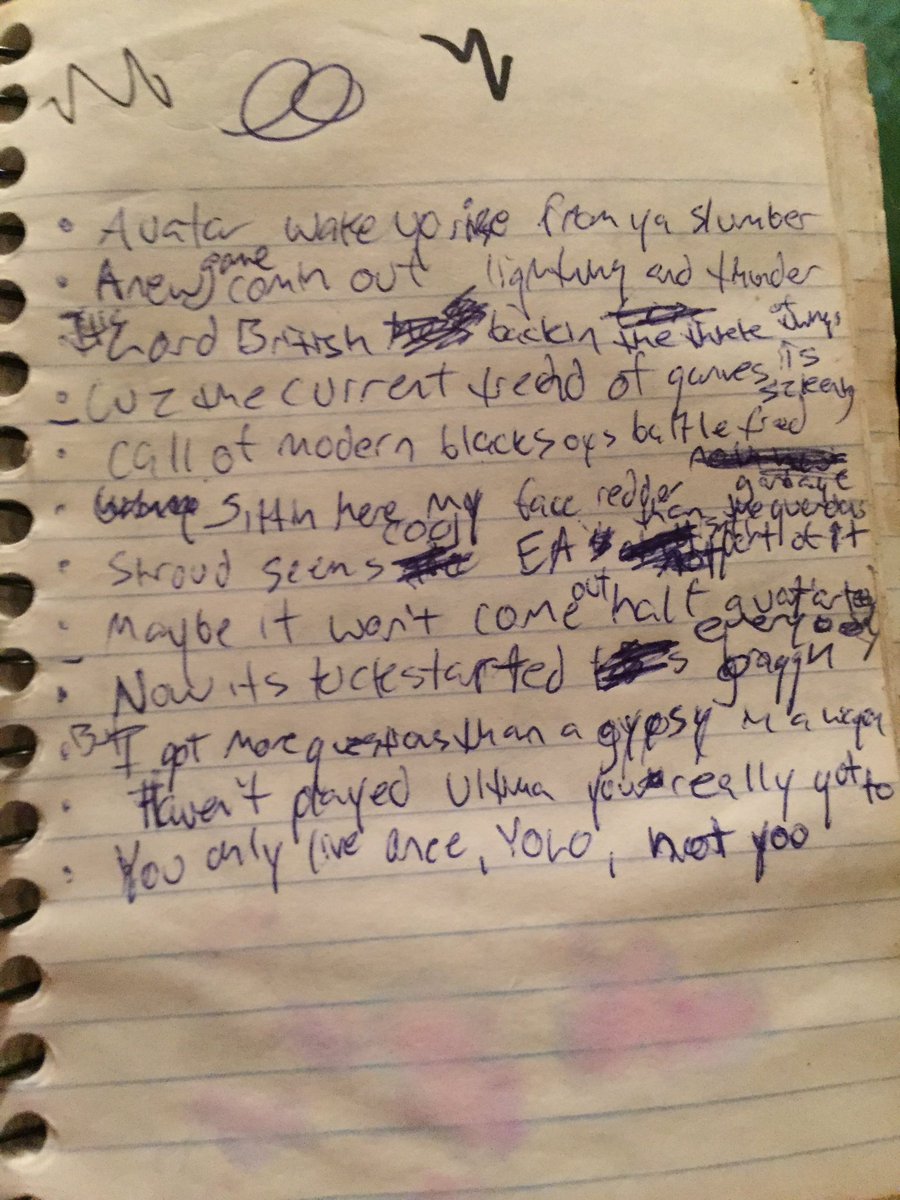 • Avatar wake up rise from ya slumber
• A new game comin out lightning and thunder
• Lord British back in the of things
• Cuz the current trend of games is
• Call of modern blacks ops battle
• Sittin here my face redder than the garbage
• Shroud seems cool EA's not part of it
• Maybe it won't come out half
• Now its kickstarted everyone's braggin
• But I got more questions than a gypsy in a wagon
• Haven't played Ultima you really got to
• You only live once, YOLO, not you